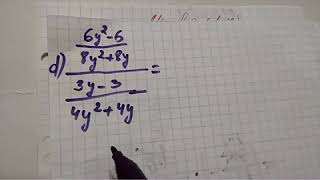 6y²-6
8y²+8y
d) =
3y-3
4y²+4y